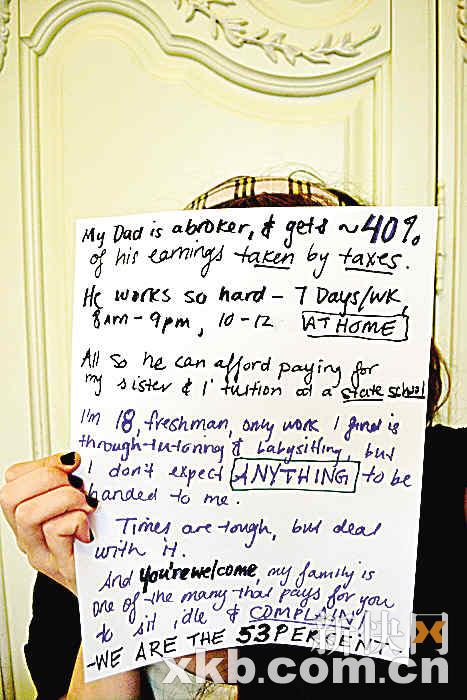 My Dad is a broker, & gets ~40%
of his earnings taken by taxes.
He works so hard - 7 Days/WK,
8am - 9pm, 10-12 AT HOME
All so he can afford paying for
my sister & I' tuition at a state school
I'm 18, freshman, only work I find is
through tutoring & babysitting, but
I don't expect ANYTHING to be
handed to me.
Times are tough, but deal
with it.
And You're welcome, my family is
one of the many that pays for you
to sit idle & COMPLAIN!
-WE ARE THE 53 PERCENT-
新快网
xkb.com.cn